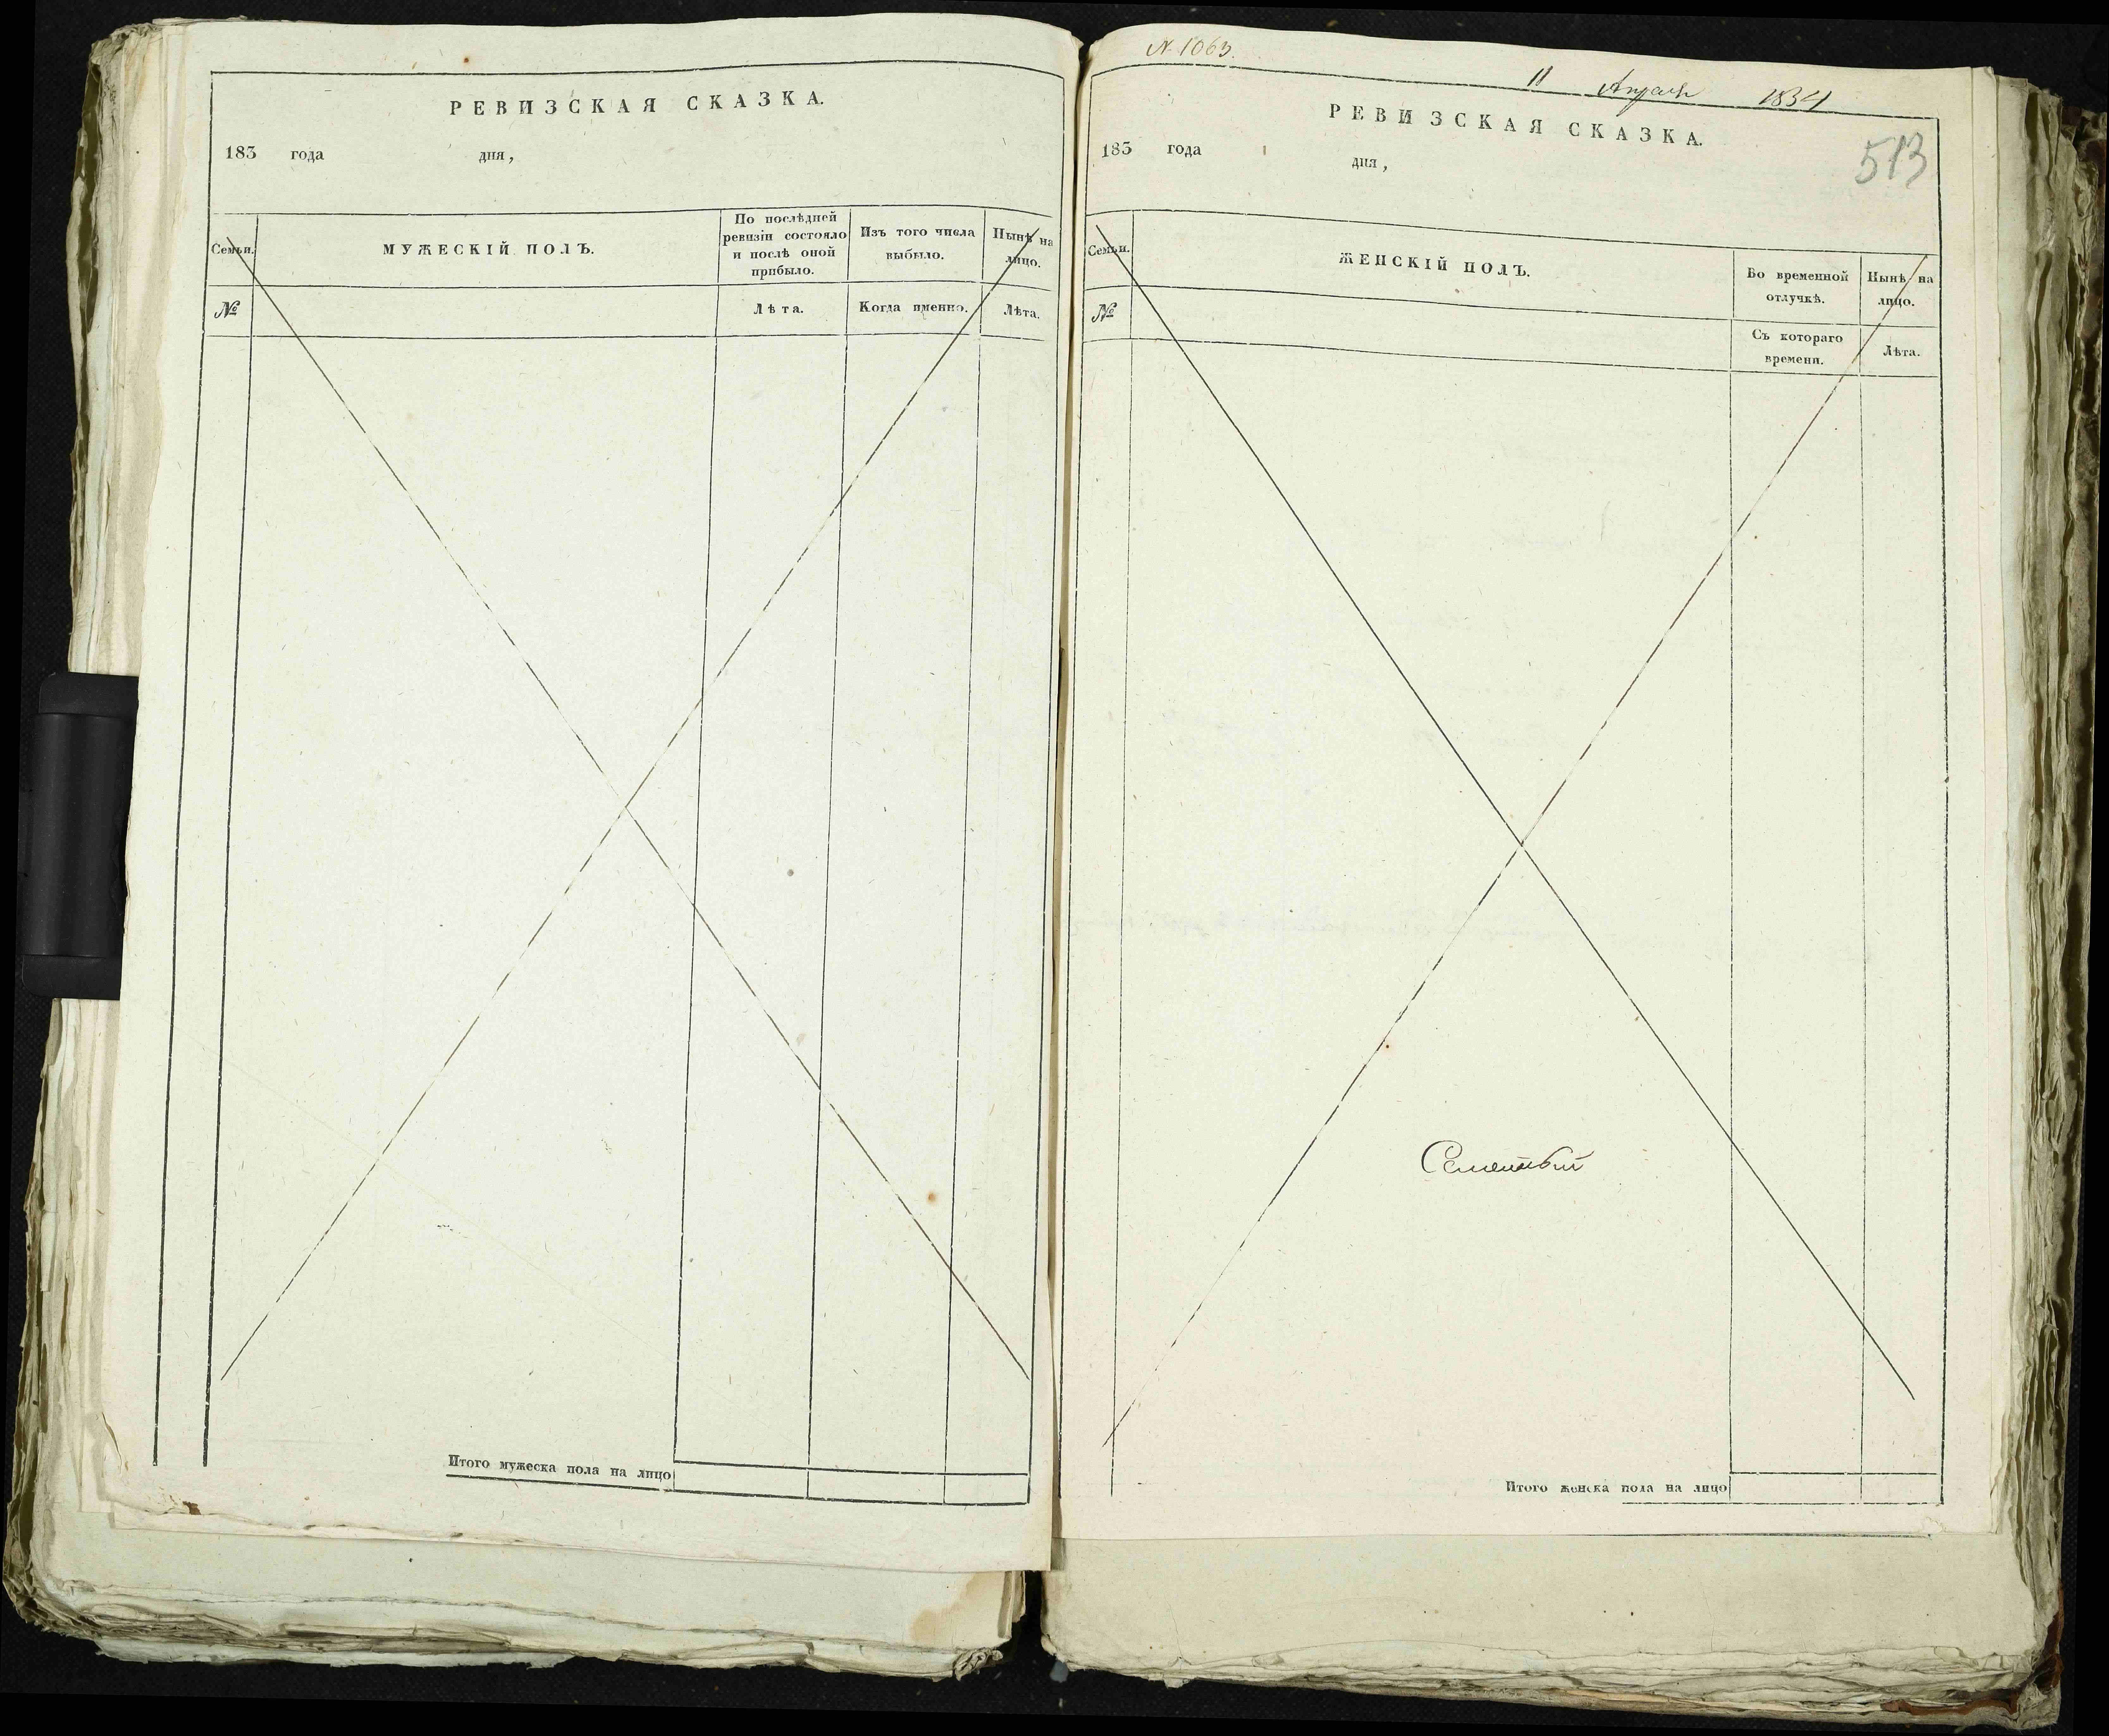 РЕВИЗСКАЯ СКАЗКА.
183 года дня,
Семьи.
МУЖЕСКІЙ ПОЛЪ.
По послѣдней
ревизіи состояло
и послѣ оной
прибыло.
Изъ того числа
выбыло.
Нынѣ на
лицо.
№
Лѣта.
Когда именно.
Лѣта.
Итого мужеска пола на лицо
№ 1063.
11 Апреля 1834
РЕВИЗСКАЯ СКАЗКА.
513
183 года дня,
Семьи.
ЖЕНСКІЙ ПОЛЪ.
Во временной
отлучкѣ.
Нынѣ на
лицо.
№
Съ котораго
времени.
Лѣта.
Итого женска пола на лицо